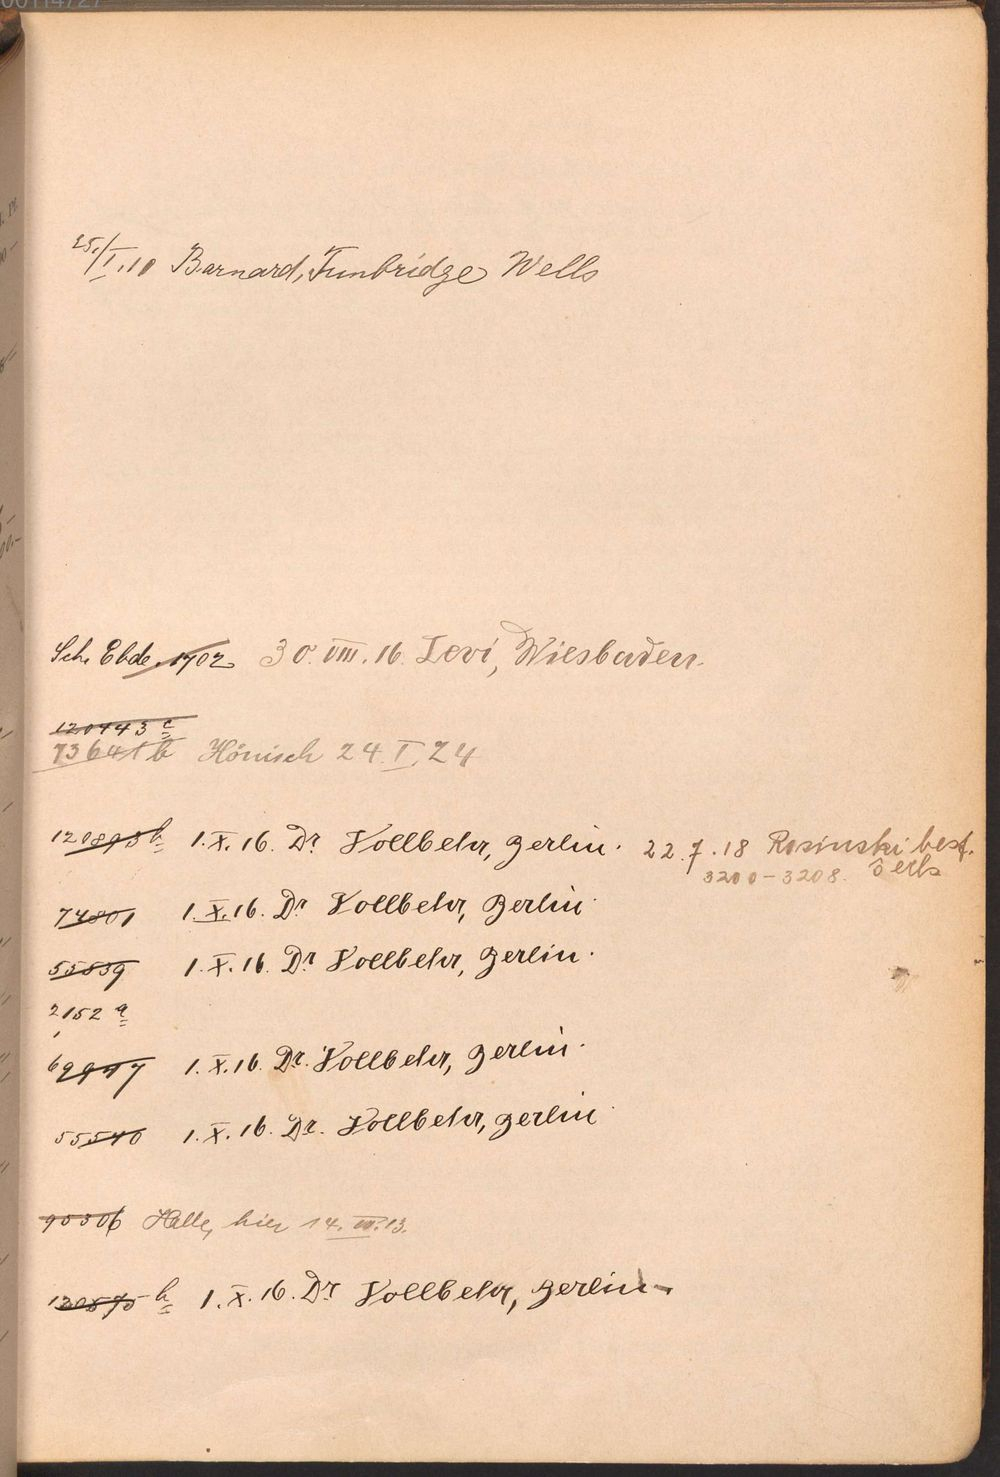 25./I.10 Barnard, Tunbridge Wells
Sch. Ebde. 1702 30.VIII.16. Levi, Wiesbaden.
120443 c
73641 b Hönisch 24.I.24
120893 b 1.X.16. Dr Vollbehr, Berlin. 22.7.18 Rosinski best.
3200-3208.
74801 1.X.16. Dr Vollbehr, Berlin.
55839 1.X.16. Dr Vollbehr, Berlin.
2152 a
69947 1.X.16. Dr. Vollbehr, Berlin.
55540 1.X.16. Dr. Vollbehr, Berlin.
90306 Halle, hier 14.III.13.
120875 b 1.X.16. Dr Vollbehr, Berlin